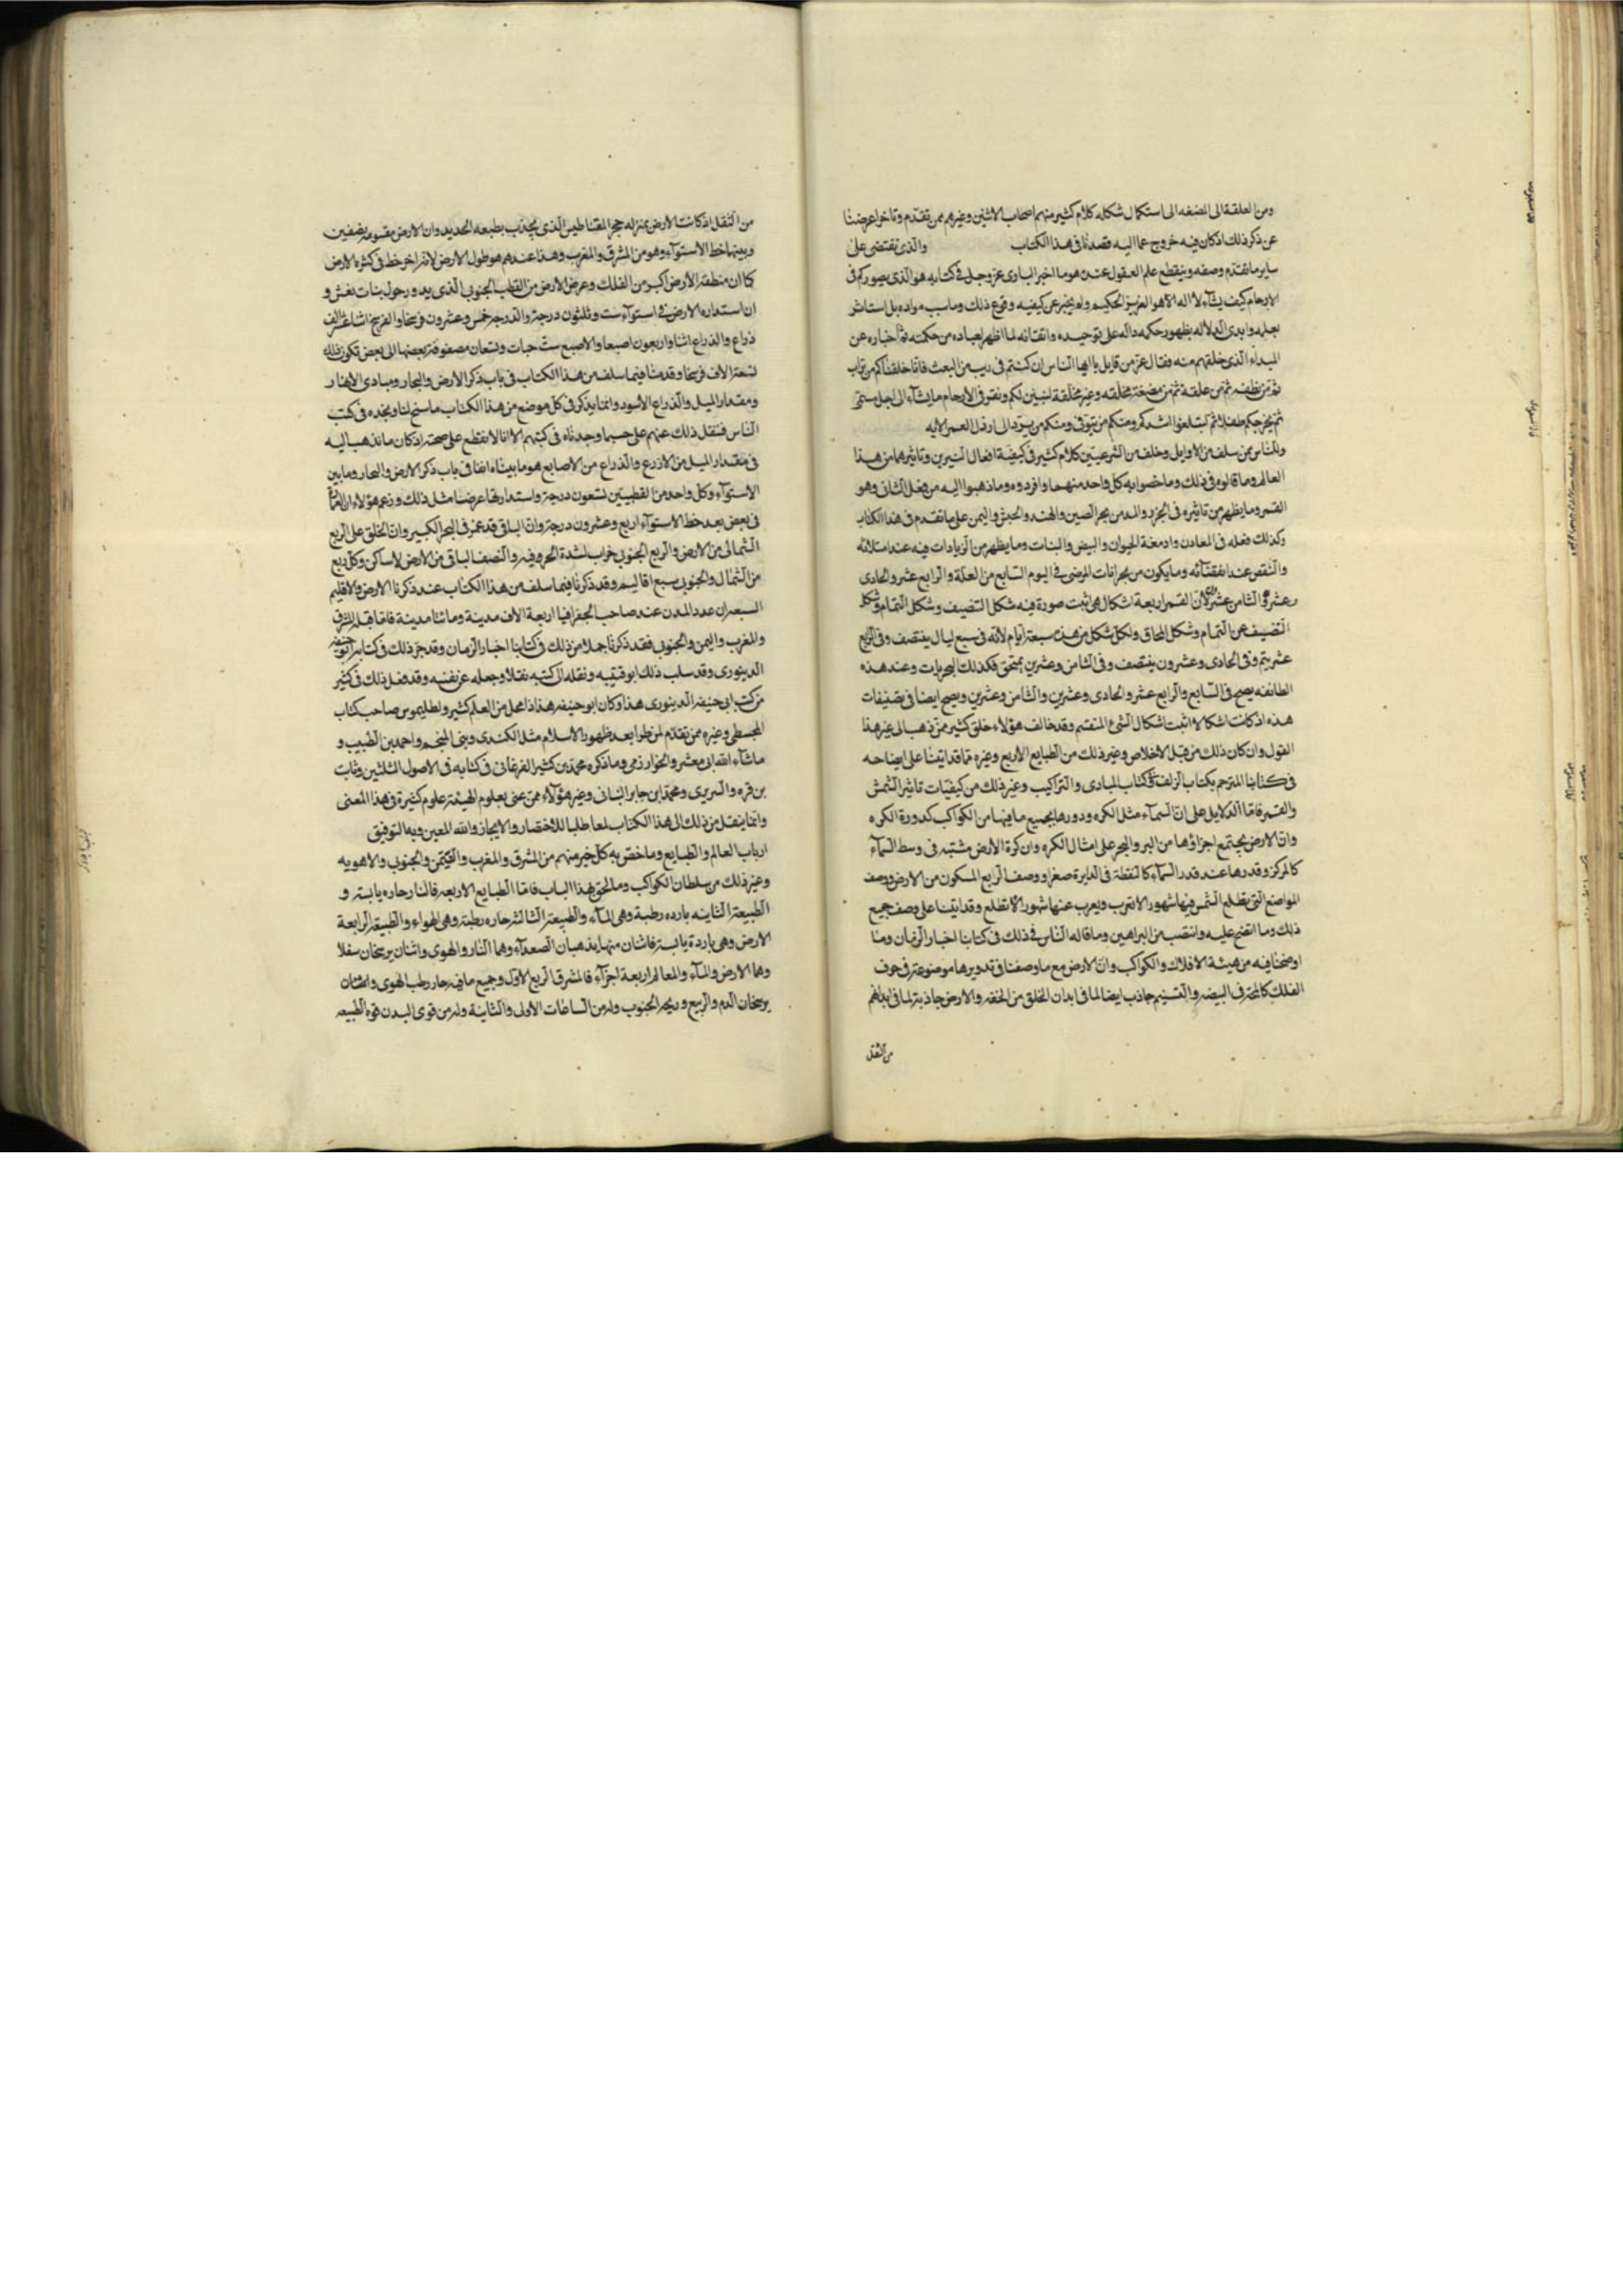 ومن العلقة الى المضغه الى استكمال شكله كلام كثير منهم اصحاب الاثنين وغيرهم ممن تقدم وتاخر اعرضنا
عن ذكر ذلك اذ كان فيه خروج عما اليه قصدنا فى هذا الكتاب والذى يقتضى على
ساير ما تقدم وصفه وينقطع علم العقول عنده هو ما اخبر البارى عز وجل فى كتابه هو الذى يصوركم فى
الارحام كيف يشآء لا اله الا هو العزيز الحكيم ولم يخبر عن كيفيه وقوع ذلك وما سبب مواده بل استاثر
بعلمه وابدى الدلاله بظهور حكمه داله على توحيده واتقانه لما اظهر لعباده من حكمته ثم اخباره عن
المبداء الذى خلقهم منه فقال عز من قايل يا ايها الناس ان كنتم فى ريب من البعث فانا خلقناكم من تراب
ثم من نطفه ثم من علقة ثم من مضغة مخلقه وغير مخلقة لنبين لكم ونقر فى الارحام ما يشآء الى اجل مسمى
ثم يخرجكم طفلا ثم لتبلغوا اشدكم ومنكم من يتوفى ومنكم من يرد الى ارذل العمر الايه
وللناس ممن سلف من الاوايل وخلف من الشرعيين كلام كثير فى كيفية افعال النيرين وتاثيرهما من هذا
العالم وما قالوه فى ذلك وما خصوا به كل واحد منهما وافردوه وما ذهبوا اليه من فعل الثانى وهو
القمر وما يظهر من تاثيره فى الجزر والمد من بحر الصين والهند والحبش واليمن على ما تقدم فى هذا الكتاب
وكذلك فعله فى المعادن وادمغة الحيوان والبيض والنبات وما يظهر من الزيادات فيه عند امتلائه
والنقص عند وما يكون من بحرانات المرضى فى اليوم السابع من العلة والرابع عشر والحادى
عشر والثامن عشر لان القمر اربعة اشكال هى اثبت صورة فيه شكل التنصيف وشكل التمام وشكل
التنصيف عن التمام وشكل المحاق ولكل شكل من هذه سبعة ايام لانه فى سبع ليال ينتصف وفى الرابع
عشر يتم وفى الحادى وعشرون ينتصف وفى الثامن وعشرين يمتحق فكذلك البحريات وعند هذه
الطائفه يصح فى السابع والرابع عشر والحادى وعشرين والثامن وعشرين ويصح ايضا فى تضيفات
هذه اذ كانت اشكالا اثبت اشكال الشئ المنقسم وقد خالف هؤلاء خلق كثير ممن ذهب الى غير هذا
القول وان كان ذلك من قبل الاخلاص وغير ذلك من الطبايع الاربع وغيره مما قد اتينا على ايضاحه
فى كتابنا المترجم بكتاب الزلف وكتاب المبادى والتراكيب وغير ذلك من كيفيات تاثير الشمس
والقمر فاما الدلايل على ان السمآء مثل الكره ودورها بجميع ما فيها من الكواكب كدورة الكره
وان الارض بجتمع اجزاؤها من البر والبحر على امثال الكره وان كرة الارض مثبته فى وسط السمآء
كالمركز وقدرها عند قدر السمآء كالنقطة فى الدايرة صغرا ووصف الربع المسكون من الارض ووصف
المواضع التى يطلع الشمس فيها شهورا لا تغرب ويغرب عنها شهورا لا تطلع وقد اتينا على وصف جميع
ذلك وما اتضح عليه وانتصب من البراهين وما قاله الناس فى ذلك فى كتابنا اخبار الزمان وما
اوضحنا فيه من هيئة الافلاك والكواكب وان الارض مع ما وصفنا فى تدويرها موضوعة فى جوف
الفلك كالمح فى البيضه والنسيم جاذب ايضا لما فى ابدان الخلق من الخفه والارض جاذبة لما فى ابدانهم
من الثقل
من الثقل اذ كانت الارض بمنزله حجر المقناطيس الذى يجذب بطبعه الحديد وان الارض مقسومه بنصفين
وبينها خط الاستوآء وهو من المشرق والمغرب وهذا عندهم هو طول الارض لانه اخر خط فى كره الارض
كما ان منطقة الارض اكبر من الفلك وعرض الارض من القطب الجنوبى الذى يدور حول بنات نعش و
ان استداره الارض فى استوآء ست وثلثون درجة والدرجة خمس وعشرون فرسخا والفرسخ اثنا عشر الف
ذراع والذراع اثنا واربعون اصبعا والاصبع ست حبات وتسعان مصفوفة بعضها الى بعض تكون ذلك
تسعة الاف فرسخا وقدمنا فيما سلف من هذا الكتاب فى باب ذكر الارض والبحار ومبادى الانهار
ومقدار الميل والذراع الاسود وانما يذكر فى كل موضع من هذا الكتاب ما سنح لنا ونجده فى كتب
الناس فننقل ذلك عنهم على حسب ما وجدناه فى كتبهم الا انا لا نقطع على صحته اذ كان ما نذهب اليه
فى مقدار الميل من الاذرع والذراع من الاصابع هو ما بيناه انفا فى باب ذكر الارض والبحار وما بين
الاستوآء وكل واحد من القطبيين تسعون درجة واستدارتها عرضا مثل ذلك وزعم هؤلاء ان
فى بعض بعد خط الاستوآء اربع وعشرون درجة وان الباقى قد غمره البحر الكبير وان الخلق على الربع
الشمالى من الارض والربع الجنوبى خراب لشدة الحر وفيه والنصف الباقى من الارض لا ساكن وكل ربع
من الشمال والجنوبى سبع اقاليم وقد ذكرنا فيما سلف من هذا الكتاب عند ذكرنا الارض والاقاليم
السبعه ان عدد المدن عند صاحب الجغرافيا اربعة الاف مدينة ومائتا مدينة فاما قبلة المشرق
والمغرب واليمن والجنوبى فقد ذكرنا جملا من ذلك فى كتابنا اخبار الزمان وقد جرد ذلك فى كتابه ابو حنيفه
الدينورى وقد سلب ذلك ابو قتيبه ونقله الى كتبه نقلا وجعله عن نفسه وقد فعل ذلك فى كثير
من كتب ابى حنيفه الدينورى هذا وكان ابو حنيفه هذا ذا محل من العلم كثير ولطليموس صاحب كتاب
المجسطى وغيره ممن تقدم ثم طرا بعد ظهور الاسلام مثل الكندى وبنى المنجم واحمد بن الطبيب و
ماشآء الله ابى معشر والخوارزمى وما ذكره محمد بن كثير الفرغانى فى كتابه فى الاصول الثلثين وثابت
بن قره والسريرى ومحمد ابن جابر البتانى وغير هؤلآء ممن عنى بعلوم الهيئة علوم كثيرة فى هذا المعنى
وانما ينقل من ذلك الى هذا الكتاب لمعا طلبا للاختصار والايجاز والله المعين وبه التوفيق
ارباب العالم والطبايع وما خص به كل خير منهم من المشرق والمغرب والتيمن والجنوبى والاهويه
وغير ذلك من سلطان الكواكب وما لحق بهذا الباب فاما الطبايع الاربعه فالنار حاره يابسة و
الطبيعة الثانيه بارده رطبة وهى المآء والطبيعة الثالثة حاره رطبة وهى الهواء والطبيعة الرابعة
الارض وهى باردة يابسة فاثنان منها يذهبان الصعدآء وهما النار والهوى واثنان يرسخان سفلا
وهما الارض والمآء والمعالم اربعة اجزآء فالمشرق الربع الاول وجميع ما فيه حار رطب الهوى واثنان
يرسخان الدم والربيع وريحه الجنوب وله من الساعات الاولى والثانية وله من قوى البدن قوه الطبيعه